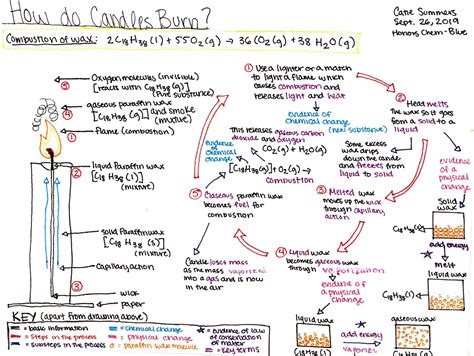 How do Candles Burn?
Catie Summers
Sept. 26, 2019
Honors Chem-Blue
Combustion of wax: 2C18H38(l) + 55O2(g) → 36(O2(g) + 38 H2O(g)
Oxygen molecules (invisible)
[reacts with C18H38(g)]
(Pure substance)
gaseous paraffin wax
[C18H38(g)] and smoke
(mixture)
flame (combustion)
liquid Paraffin wax
[C18H38(l)]
(mixture)
solid Paraffin wax
[C18H38(s)]
(mixture)
Capillary action
wick
paper
① Use a lighter or a match
to light a flame which
causes combustion and
releases light and heat
evidence of
chemical change
(new substance)
② Heat melts
the wax so it goes
from a solid to a
liquid
evidence of
a physical
change
Some excess
wax drips
down the candle
and freezes from
liquid to solid
This releases gaseous carbon
dioxide and water vapor
CO2(g) + H2O(g)
[C18H38(g)] + O2(g) →
combustion
evidence of
chemical
change
③ Melted wax
moves up the wick
through capillary
action
④ Liquid wax
becomes gaseous wax
through vaporization
evidence of
a physical
change
⑤ Gaseous paraffin wax
becomes fuel for
combustion
Candle loses mass
as the mass vaporized
into a gas and is now
in the air
solid
wax
C18H38(s)
add energy
melt
liquid wax
C18H38(l)
liquid wax
add energy
vaporize
gaseous wax
KEY (apart from drawing above)
= basic information
= Steps in the process
= substeps in the process
= chemical change
= physical change
= paraffin wax molecule
= evidence of law of
conservation of
matter
= key terms